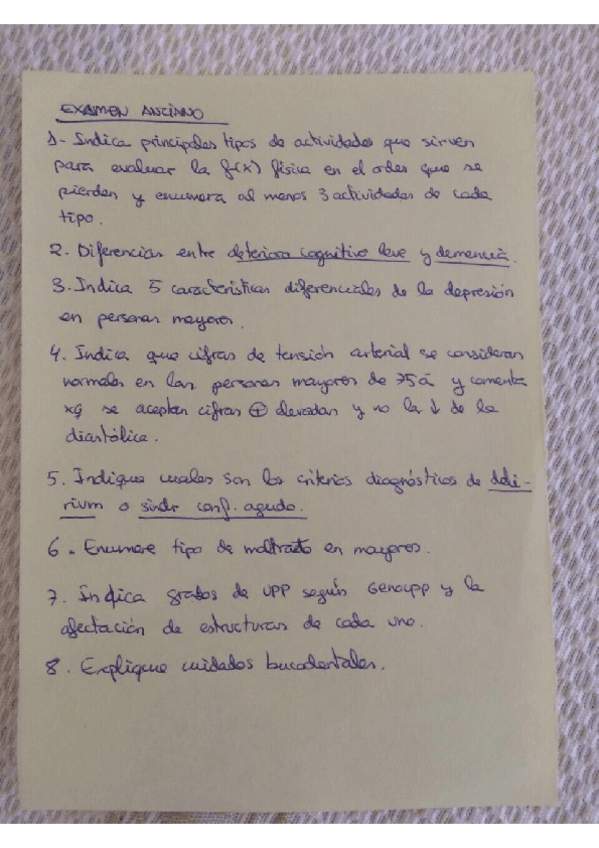 EXAMEN ANCIANO
1- Indica principales tipos de actividades que sirven
para evaluar la f(x) física en el orden que se
pierden y enumera al menos 3 actividades de cada
tipo.
2. Diferencias entre deterioro cognitivo leve y demencia.
3. Indica 5 características diferenciales de la depresión
en personas mayores.
4. Indica que cifras de tensión arterial se consideran
normales en las personas mayores de 75a y comenta
xq se aceptan cifras ⊕ elevadas y no la ↓ de la
diastólica.
5. Indique cuales son los criterios diagnósticos de deli-
rium o sindr conf. agudo.
6. Enumere tipo de maltrato en mayores.
7. Indica grados de UPP según Geneupp y la
afectación de estructuras de cada uno.
8. Explique cuidados bucodentales.